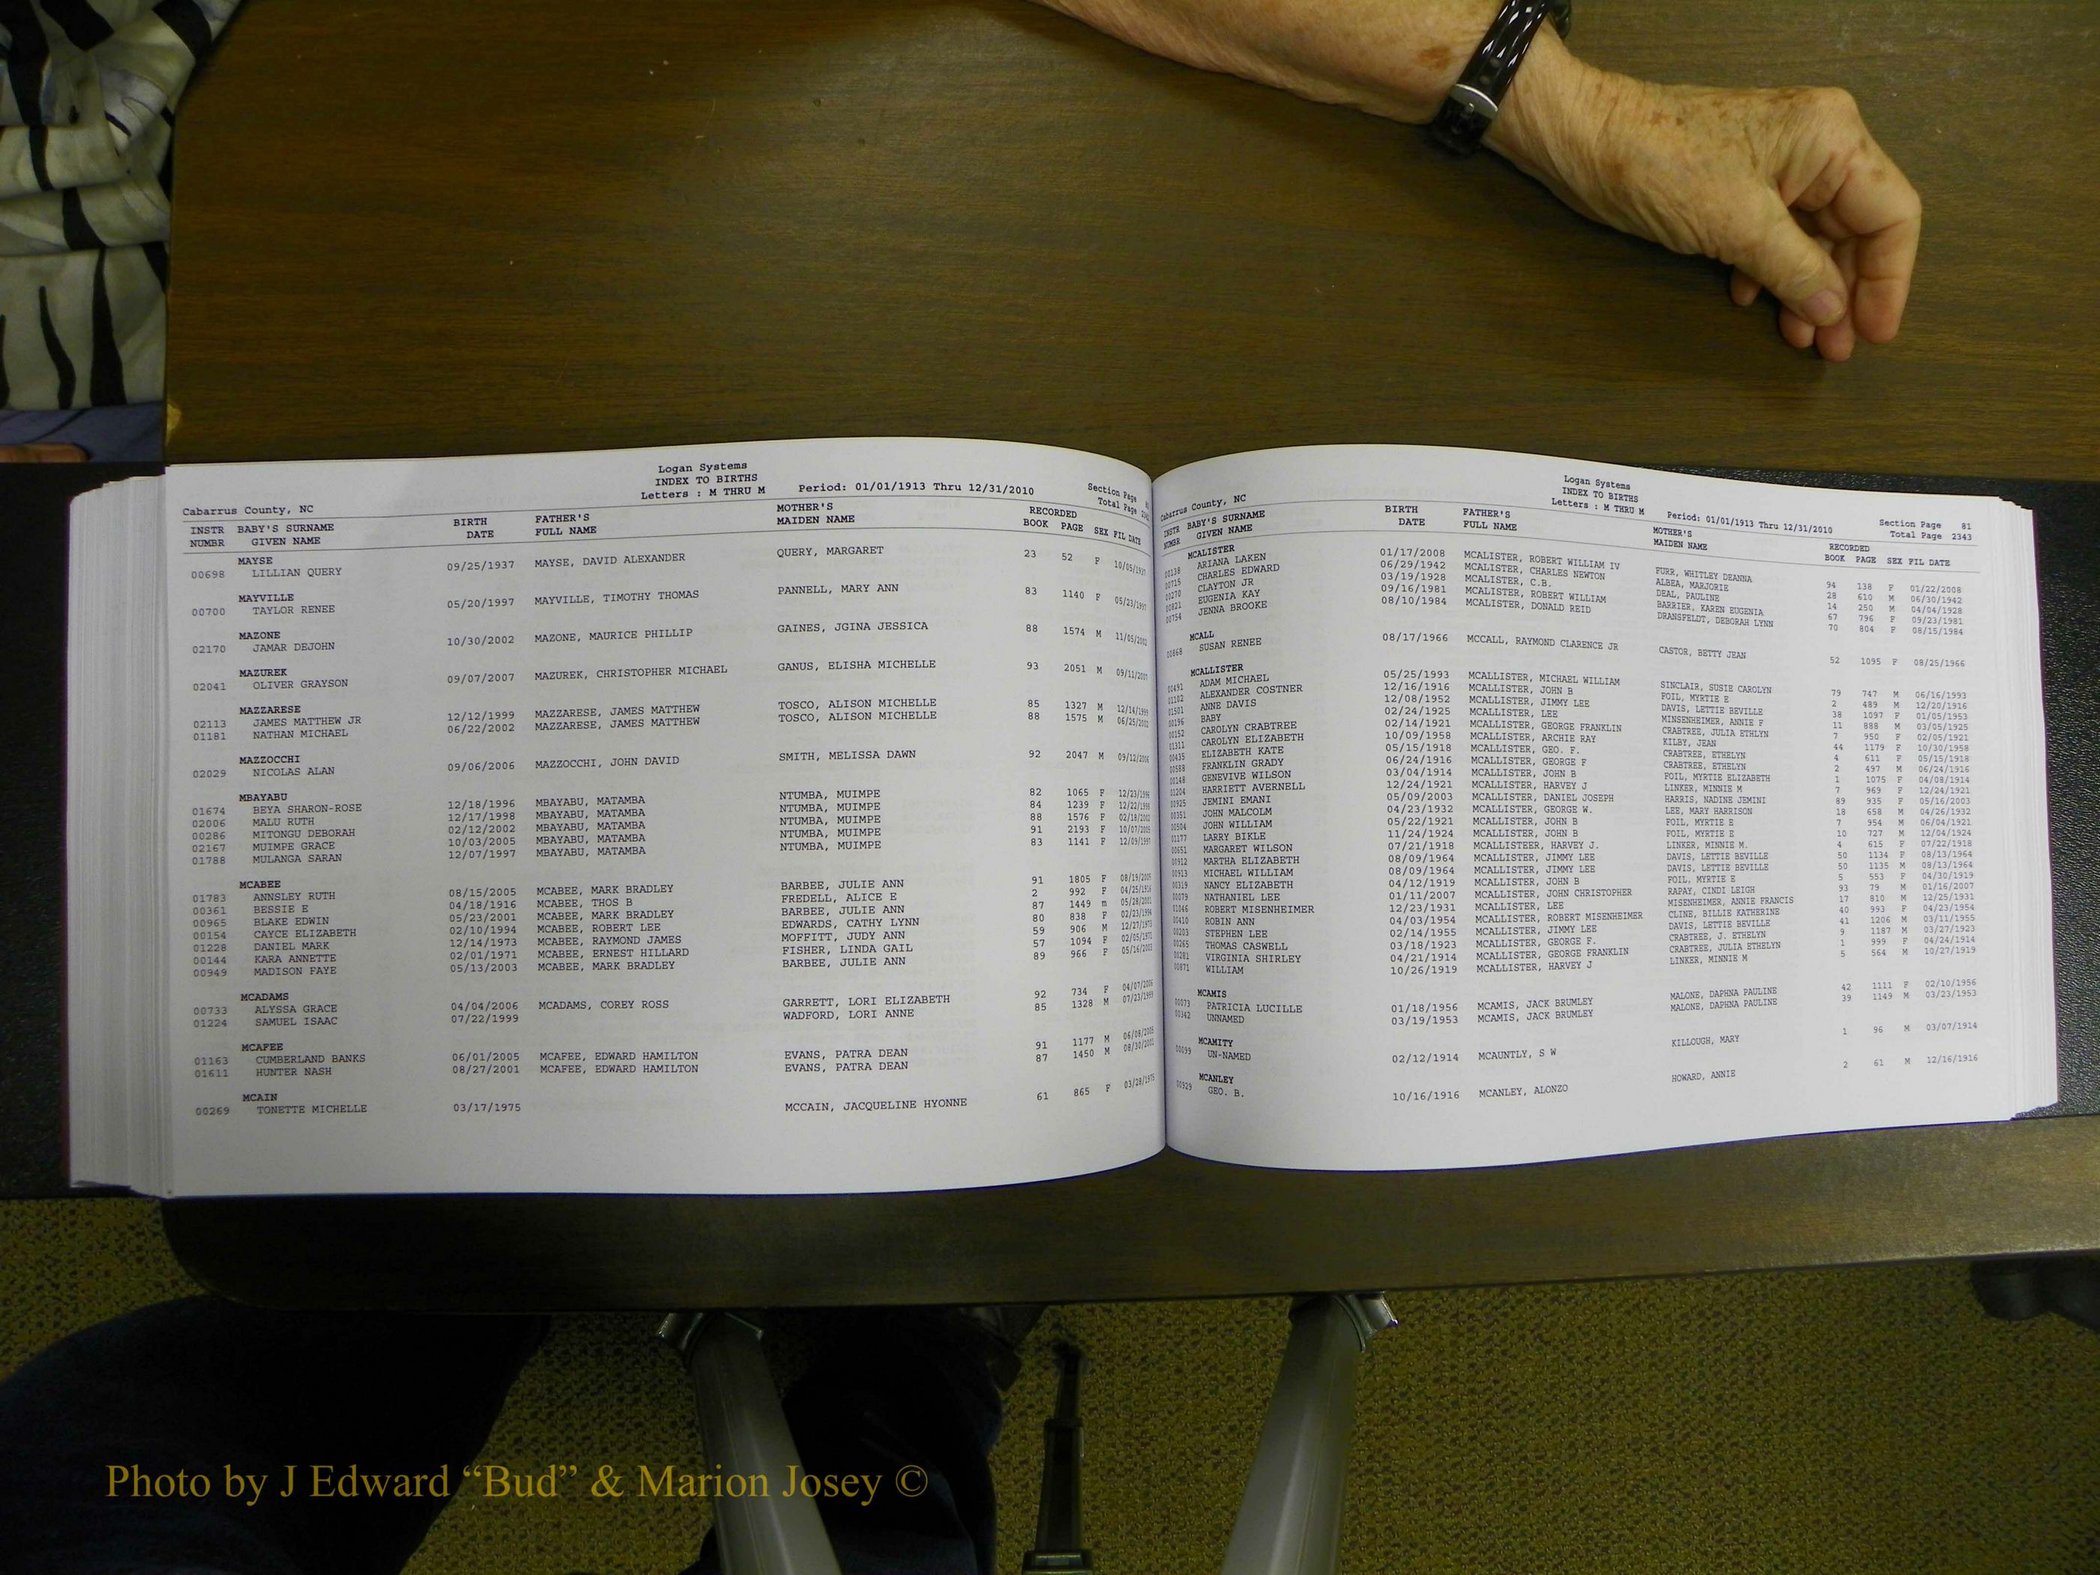 Logan Systems
INDEX TO BIRTHS
Letters : M THRU M Period: 01/01/1913 Thru 12/31/2010 Section Page 81
Cabarrus County, NC Total Page
INSTR BABY'S SURNAME BIRTH FATHER'S MOTHER'S RECORDED
NUMBR GIVEN NAME DATE FULL NAME MAIDEN NAME BOOK PAGE SEX FIL DATE
MAYSE
00698 LILLIAN QUERY 09/25/1937 MAYSE, DAVID ALEXANDER QUERY, MARGARET 23 52 F 10/05/1937
MAYVILLE
00700 TAYLOR RENEE 05/20/1997 MAYVILLE, TIMOTHY THOMAS PANNELL, MARY ANN 83 1140 F 05/23/1997
MAZONE
02170 JAMAR DEJOHN 10/30/2002 MAZONE, MAURICE PHILLIP GAINES, JGINA JESSICA 88 1574 M 11/05/2002
MAZUREK
02041 OLIVER GRAYSON 09/07/2007 MAZUREK, CHRISTOPHER MICHAEL GANUS, ELISHA MICHELLE 93 2051 M 09/11/2007
MAZZARESE
02113 JAMES MATTHEW JR 12/12/1999 MAZZARESE, JAMES MATTHEW TOSCO, ALISON MICHELLE 85 1327 M 12/16/1999
01181 NATHAN MICHAEL 06/22/2002 MAZZARESE, JAMES MATTHEW TOSCO, ALISON MICHELLE 88 1575 M 06/25/2002
MAZZOCCHI
02029 NICOLAS ALAN 09/06/2006 MAZZOCCHI, JOHN DAVID SMITH, MELISSA DAWN 92 2047 M 09/12/2006
MBAYABU
01674 BEYA SHARON-ROSE 12/18/1996 MBAYABU, MATAMBA NTUMBA, MUIMPE 82 1065 F 12/23/1996
02006 MALU RUTH 12/17/1998 MBAYABU, MATAMBA NTUMBA, MUIMPE 84 1239 F 12/22/1998
00286 MITONGU DEBORAH 02/12/2002 MBAYABU, MATAMBA NTUMBA, MUIMPE 88 1576 F 02/18/2002
02167 MUIMPE GRACE 10/03/2005 MBAYABU, MATAMBA NTUMBA, MUIMPE 91 2193 F 10/07/2005
01788 MULANGA SARAN 12/07/1997 MBAYABU, MATAMBA NTUMBA, MUIMPE 83 1141 F 12/09/1997
MCABEE
01783 ANNSLEY RUTH 08/15/2005 MCABEE, MARK BRADLEY BARBEE, JULIE ANN 91 1805 F 08/19/2005
00361 BESSIE E 04/18/1916 MCABEE, THOS B FREDELL, ALICE E 2 992 F 04/25/1916
00965 BLAKE EDWIN 05/23/2001 MCABEE, MARK BRADLEY BARBEE, JULIE ANN 87 1449 m 05/28/2001
00154 CAYCE ELIZABETH 02/10/1994 MCABEE, ROBERT LEE EDWARDS, CATHY LYNN 80 838 F 02/23/1994
01228 DANIEL MARK 12/14/1973 MCABEE, RAYMOND JAMES MOFFITT, JUDY ANN 59 906 M 12/27/1973
00144 KARA ANNETTE 02/01/1971 MCABEE, ERNEST HILLARD FISHER, LINDA GAIL 57 1094 F 02/05/1971
00949 MADISON FAYE 05/13/2003 MCABEE, MARK BRADLEY BARBEE, JULIE ANN 89 966 F 05/16/2003
MCADAMS
00733 ALYSSA GRACE 04/04/2006 MCADAMS, COREY ROSS GARRETT, LORI ELIZABETH 92 734 F 04/07/2006
01224 SAMUEL ISAAC 07/22/1999 WADFORD, LORI ANNE 85 1328 M 07/23/1999
MCAFEE
01163 CUMBERLAND BANKS 06/01/2005 MCAFEE, EDWARD HAMILTON EVANS, PATRA DEAN 91 1177 M 06/08/2005
01611 HUNTER NASH 08/27/2001 MCAFEE, EDWARD HAMILTON EVANS, PATRA DEAN 87 1450 M 08/30/2001
MCAIN
00269 TONETTE MICHELLE 03/17/1975 MCCAIN, JACQUELINE HYONNE 61 865 F 03/28/1975
Logan Systems
INDEX TO BIRTHS
Letters : M THRU M Period: 01/01/1913 Thru 12/31/2010 Section Page 81
Cabarrus County, NC Total Page 2343
INSTR BABY'S SURNAME BIRTH FATHER'S MOTHER'S RECORDED
NUMBR GIVEN NAME DATE FULL NAME MAIDEN NAME BOOK PAGE SEX FIL DATE
MCALISTER
00138 ARIANA LAKEN 01/17/2008 MCALISTER, ROBERT WILLIAM IV FURR, WHITLEY DEANNA 94 138 F 01/22/2008
00715 CHARLES EDWARD 06/29/1942 MCALISTER, CHARLES NEWTON ALBEA, MARJORIE 28 610 M 06/30/1942
00270 CLAYTON JR 03/19/1928 MCALISTER, C.B. DEAL, PAULINE 14 250 M 04/04/1928
00821 EUGENIA KAY 09/16/1981 MCALISTER, ROBERT WILLIAM BARRIER, KAREN EUGENIA 67 796 F 09/23/1981
00754 JENNA BROOKE 08/10/1984 MCALISTER, DONALD REID DRANSFELDT, DEBORAH LYNN 70 804 F 08/15/1984
MCALL
00868 SUSAN RENEE 08/17/1966 MCCALL, RAYMOND CLARENCE JR CASTOR, BETTY JEAN 52 1095 F 08/25/1966
MCALLISTER
00491 ADAM MICHAEL 05/25/1993 MCALLISTER, MICHAEL WILLIAM SINCLAIR, SUSIE CAROLYN 79 747 M 06/16/1993
01102 ALEXANDER COSTNER 12/16/1916 MCALLISTER, JOHN B FOIL, MYRTIE E 2 489 M 12/20/1916
01501 ANNE DAVIS 12/08/1952 MCALLISTER, JIMMY LEE DAVIS, LETTIE BEVILLE 38 1097 F 01/05/1953
00196 BABY 02/24/1925 MCALLISTER, LEE MINSENHEIMER, ANNIE F 11 888 M 03/05/1925
00152 CAROLYN CRABTREE 02/14/1921 MCALLISTER, GEORGE FRANKLIN CRABTREE, JULIA ETHLYN 7 950 F 02/05/1921
01311 CAROLYN ELIZABETH 10/09/1958 MCALLISTER, ARCHIE RAY KILBY, JEAN 44 1179 F 10/30/1958
00435 ELIZABETH KATE 05/15/1918 MCALLISTER, GEO. F. CRABTREE, ETHELYN 4 611 F 05/15/1918
00588 FRANKLIN GRADY 06/24/1916 MCALLISTER, GEORGE F CRABTREE, ETHELYN 2 497 M 06/24/1916
00148 GENEVIVE WILSON 03/04/1914 MCALLISTER, JOHN B FOIL, MYRTIE ELIZABETH 1 1075 F 04/08/1914
01204 HARRIETT AVERNELL 12/24/1921 MCALLISTER, HARVEY J LINKER, MINNIE M 7 969 F 12/24/1921
00925 JEMINI EMANI 05/09/2003 MCALLISTER, DANIEL JOSEPH HARRIS, NADINE JEMINI 89 935 F 05/16/2003
00351 JOHN MALCOLM 04/23/1932 MCALLISTER, GEORGE W. LEE, MARY HARRISON 18 658 M 04/26/1932
00504 JOHN WILLIAM 05/22/1921 MCALLISTER, JOHN B FOIL, MYRTIE E 7 954 M 06/04/1921
01177 LARRY BIKLE 11/24/1924 MCALLISTER, JOHN B FOIL, MYRTIE E 10 727 M 12/04/1924
00651 MARGARET WILSON 07/21/1918 MCALLISTEER, HARVEY J. LINKER, MINNIE M. 4 615 F 07/22/1918
00912 MARTHA ELIZABETH 08/09/1964 MCALLISTER, JIMMY LEE DAVIS, LETTIE BEVILLE 50 1134 F 08/13/1964
00913 MICHAEL WILLIAM 08/09/1964 MCALLISTER, JIMMY LEE DAVIS, LETTIE BEVILLE 50 1135 M 08/13/1964
00319 NANCY ELIZABETH 04/12/1919 MCALLISTER, JOHN B FOIL, MYRTIE E 5 553 F 04/30/1919
00079 NATHANIEL LEE 01/11/2007 MCALLISTER, JOHN CHRISTOPHER RAPAY, CINDI LEIGH 93 79 M 01/16/2007
01046 ROBERT MISENHEIMER 12/23/1931 MCALLISTER, LEE MISENHEIMER, ANNIE FRANCIS 17 810 M 12/25/1931
00410 ROBIN ANN 04/03/1954 MCALLISTER, ROBERT MISENHEIMER CLINE, BILLIE KATHERINE 40 993 F 04/23/1954
00203 STEPHEN LEE 02/14/1955 MCALLISTER, JIMMY LEE DAVIS, LETTIE BEVILLE 41 1206 M 03/11/1955
00265 THOMAS CASWELL 03/18/1923 MCALLISTER, GEORGE F. CRABTREE, J. ETHELYN 9 1187 M 03/27/1923
00281 VIRGINIA SHIRLEY 04/21/1914 MCALLISTER, GEORGE FRANKLIN CRABTREE, JULIA ETHELYN 1 999 F 04/24/1914
00871 WILLIAM 10/26/1919 MCALLISTER, HARVEY J LINKER, MINNIE M 5 564 M 10/27/1919
MCAMIS
00073 PATRICIA LUCILLE 01/18/1956 MCAMIS, JACK BRUMLEY MALONE, DAPHNA PAULINE 42 1111 F 02/10/1956
00342 UNNAMED 03/19/1953 MCAMIS, JACK BRUMLEY MALONE, DAPHNA PAULINE 39 1149 M 03/23/1953
MCAMITY
00099 UN-NAMED 02/12/1914 MCAUNTLY, S W KILLOUGH, MARY 1 96 M 03/07/1914
MCANLEY
00929 GEO. B. 10/16/1916 MCANLEY, ALONZO HOWARD, ANNIE 2 61 M 12/16/1916
Photo by J Edward “Bud” & Marion Josey ©